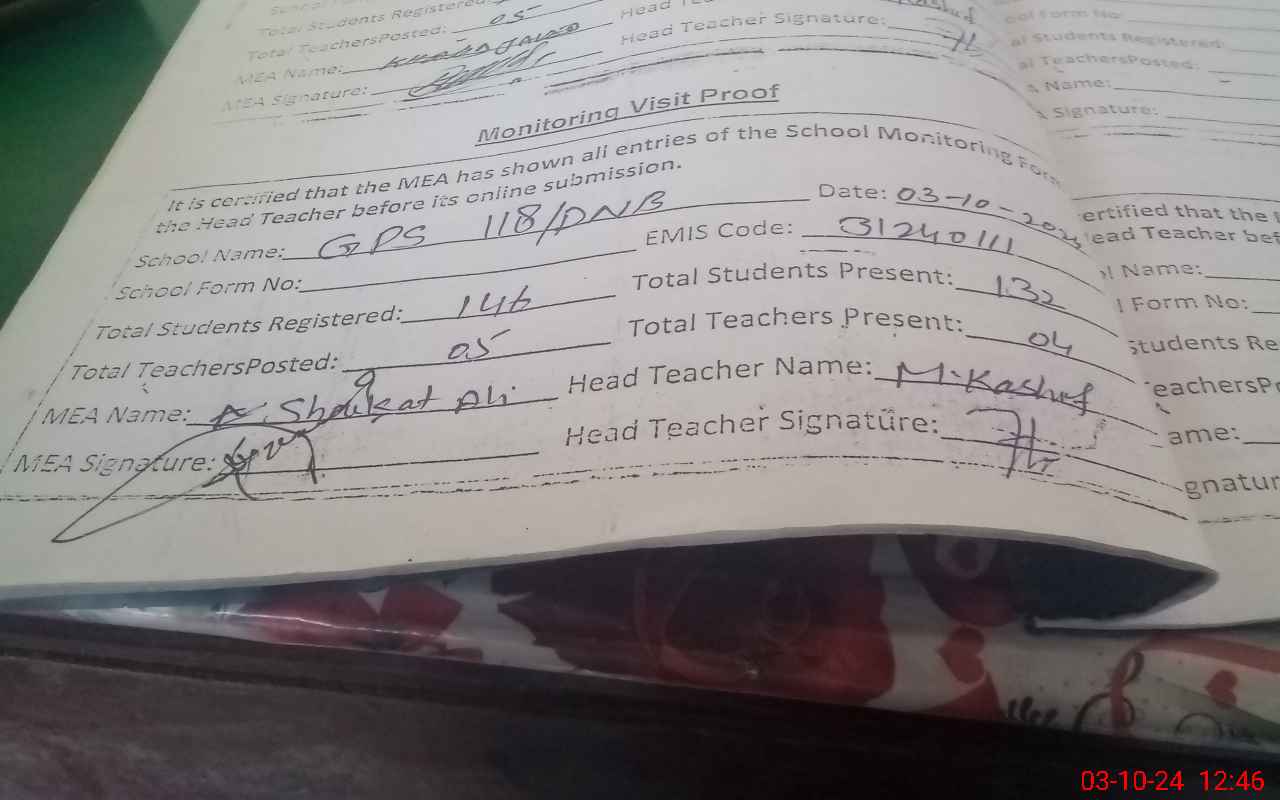 Total Students Registered:
Total TeachersPosted: 05
Head Teacher Signature:
MEA Name:
MEA Signature:
Monitoring Visit Proof
It is certified that the MEA has shown all entries of the School Monitoring Form
the Head Teacher before its online submission.
Date: 03-10-2024
School Name: GPS 118/DNB
EMIS Code: 31240111
School Form No:
Total Students Registered: 146
Total Students Present: 132
Total TeachersPosted: 05
Total Teachers Present: 04
MEA Name: Shoukat Ali
Head Teacher Name: M. Kashif
MEA Signature:
Head Teacher Signature:
al Students Registered:
al TeachersPosted:
Name:
Signature:
ertified that the
ead Teacher bef
l Name:
l Form No:
Students Re
eachersPo
ame:
gnatur
03-10-24 12:46